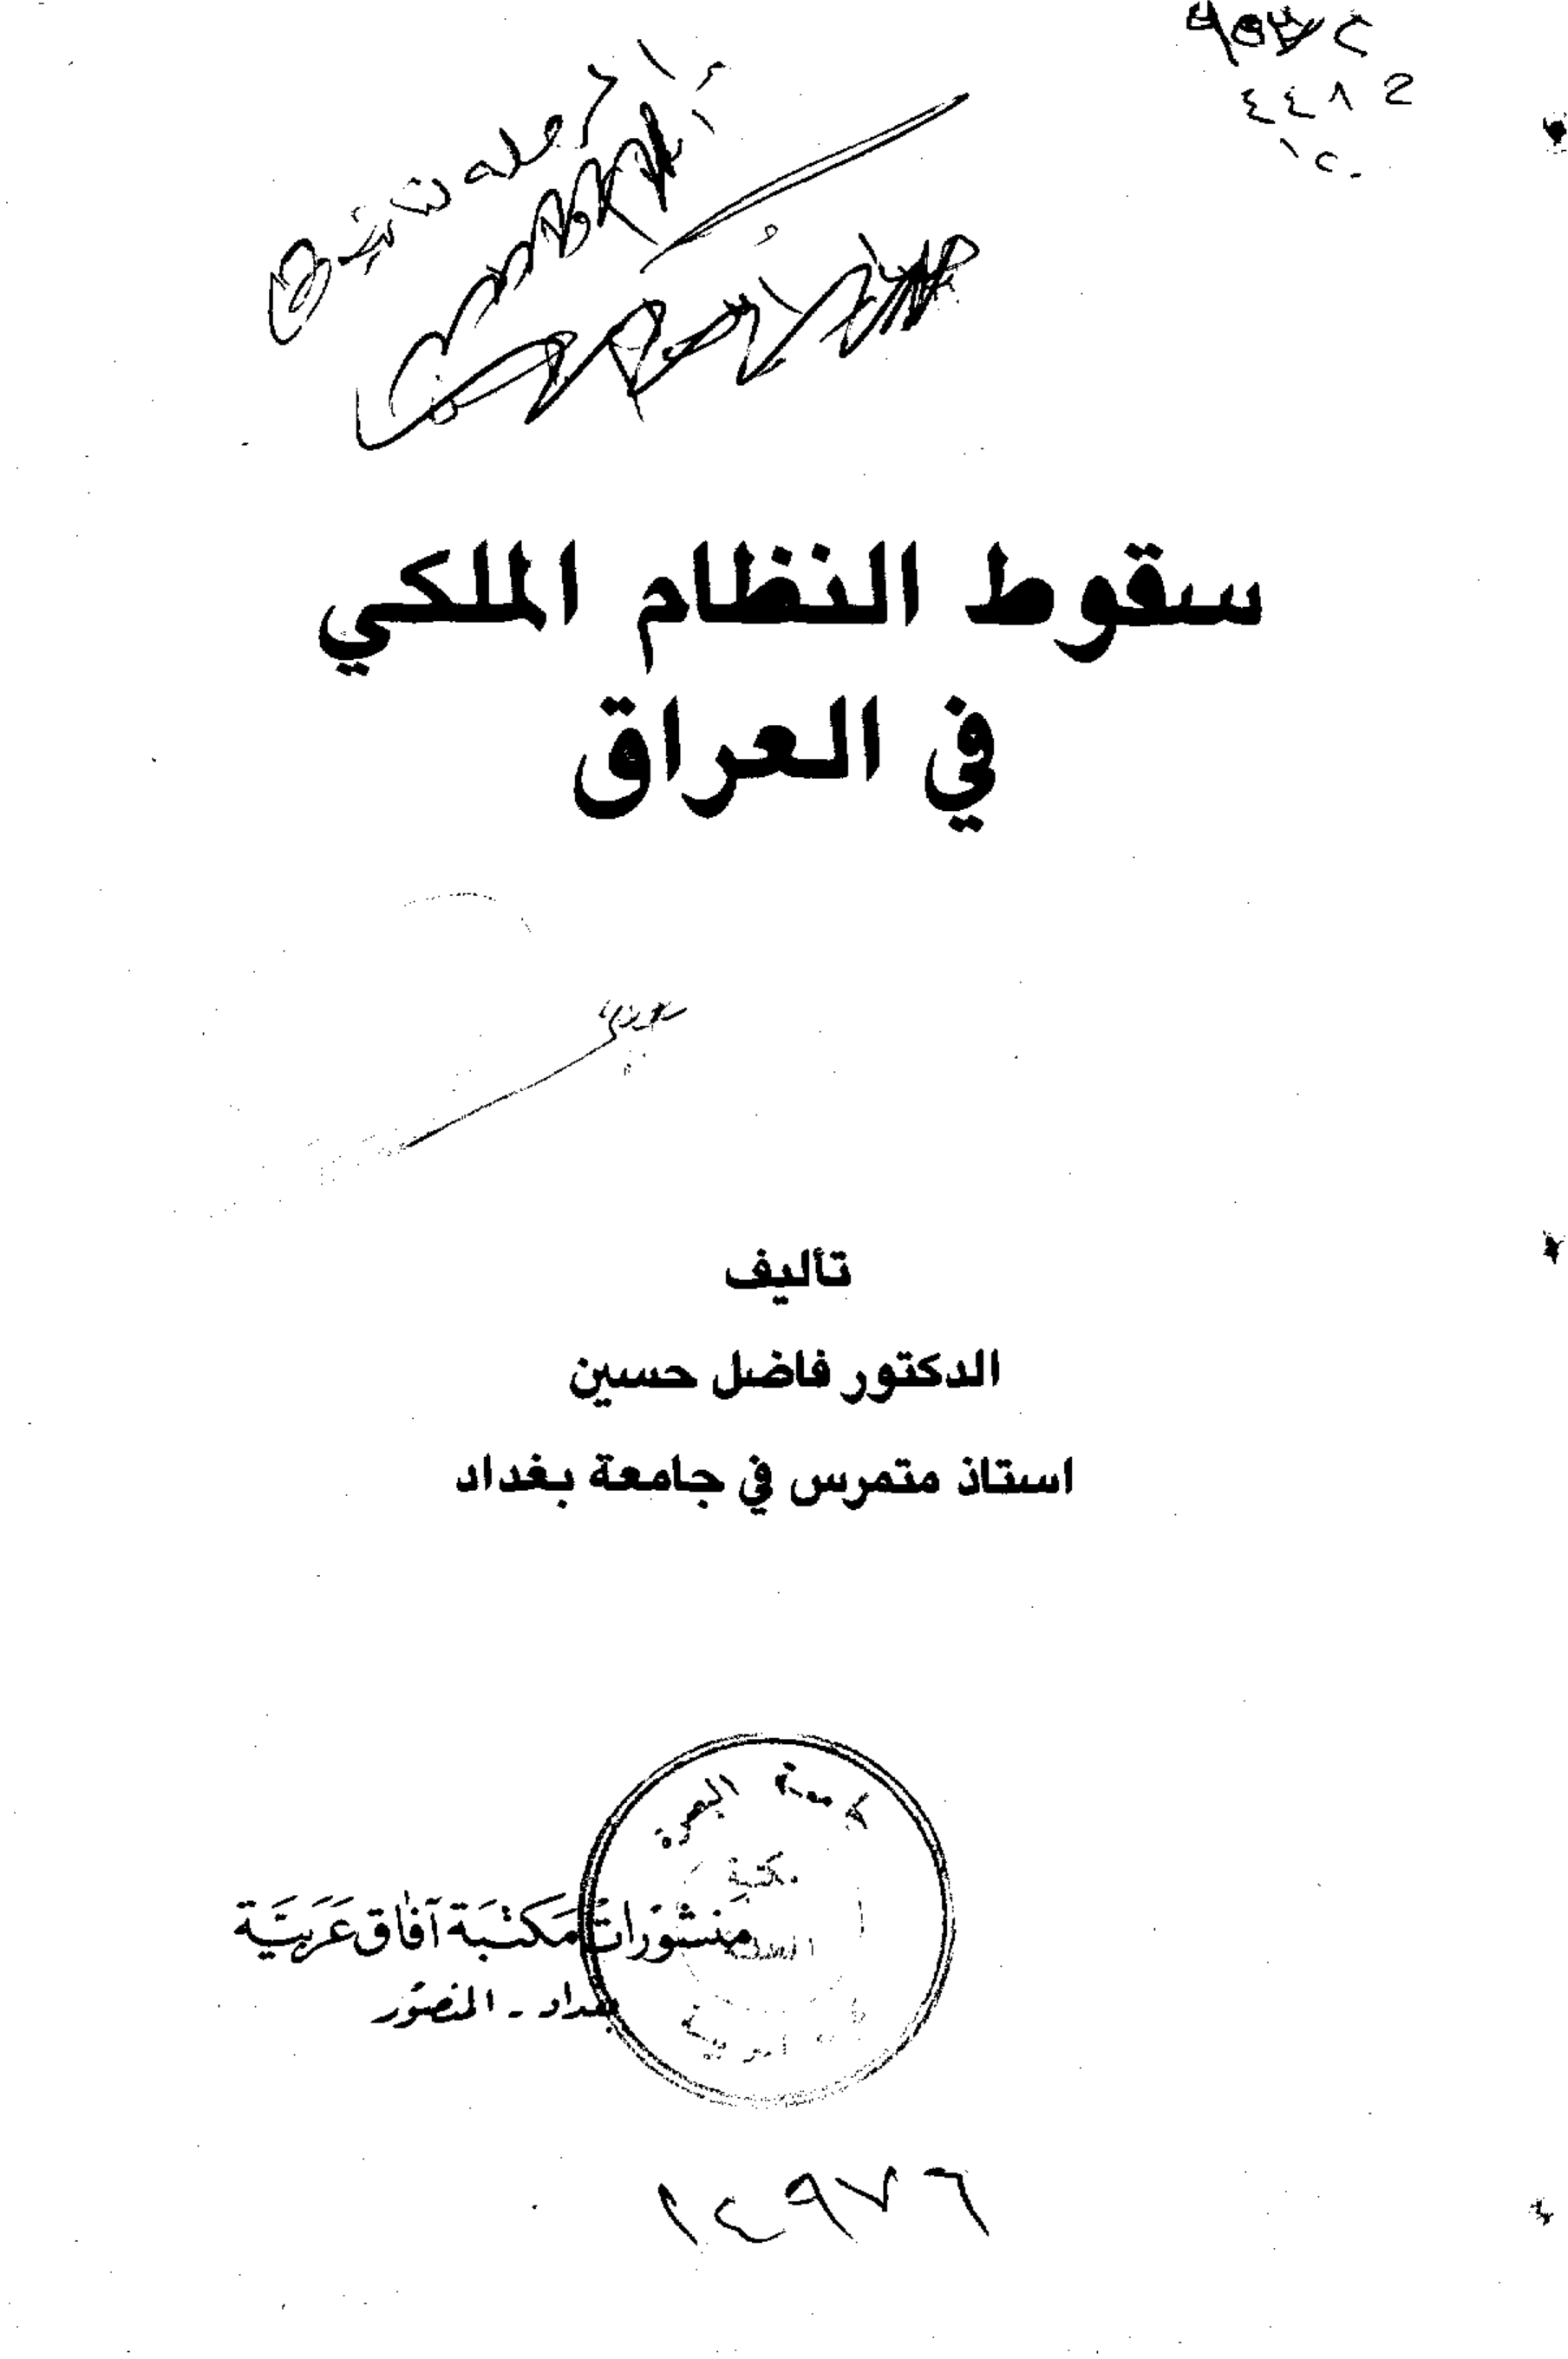 ٤٤٨
سقوط النظام الملكي
في العراق
تأليف
الدكتور فاضل حسين
استاذ متمرس في جامعة بغداد
مكتبة
منشورات مكتبة آفاق عربية
بغداد - المنصور
١٤٩٧٦